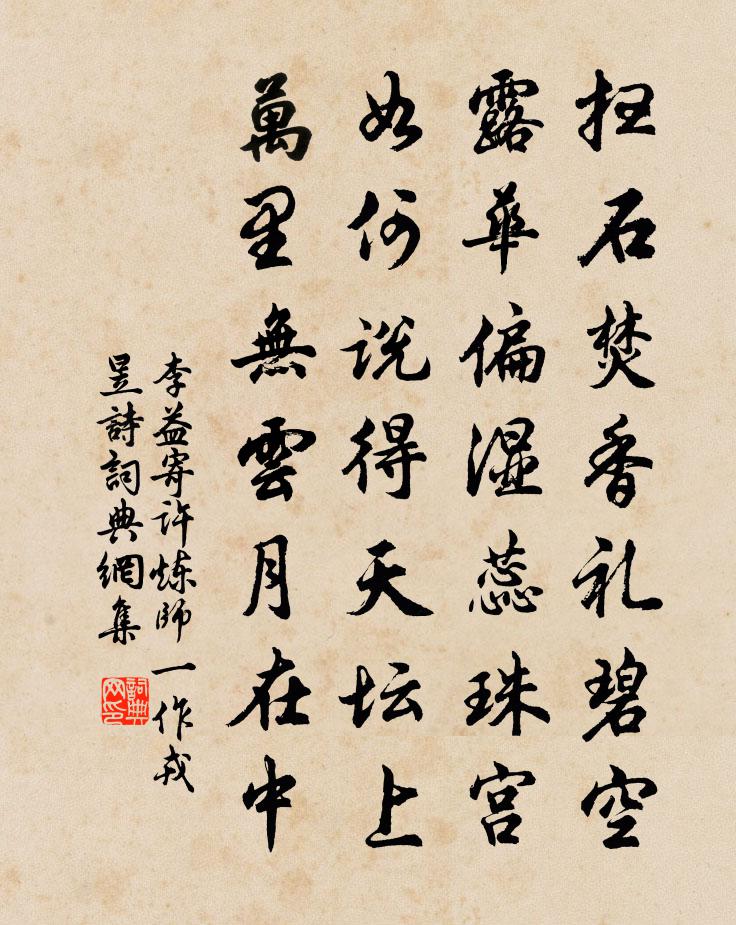 扫石焚香礼碧空
露華偏湿蕊珠宫
如何说得天坛上
萬里無雲月在中
李益寄许炼师一作戎
昱詩詞典網集
詞典网印